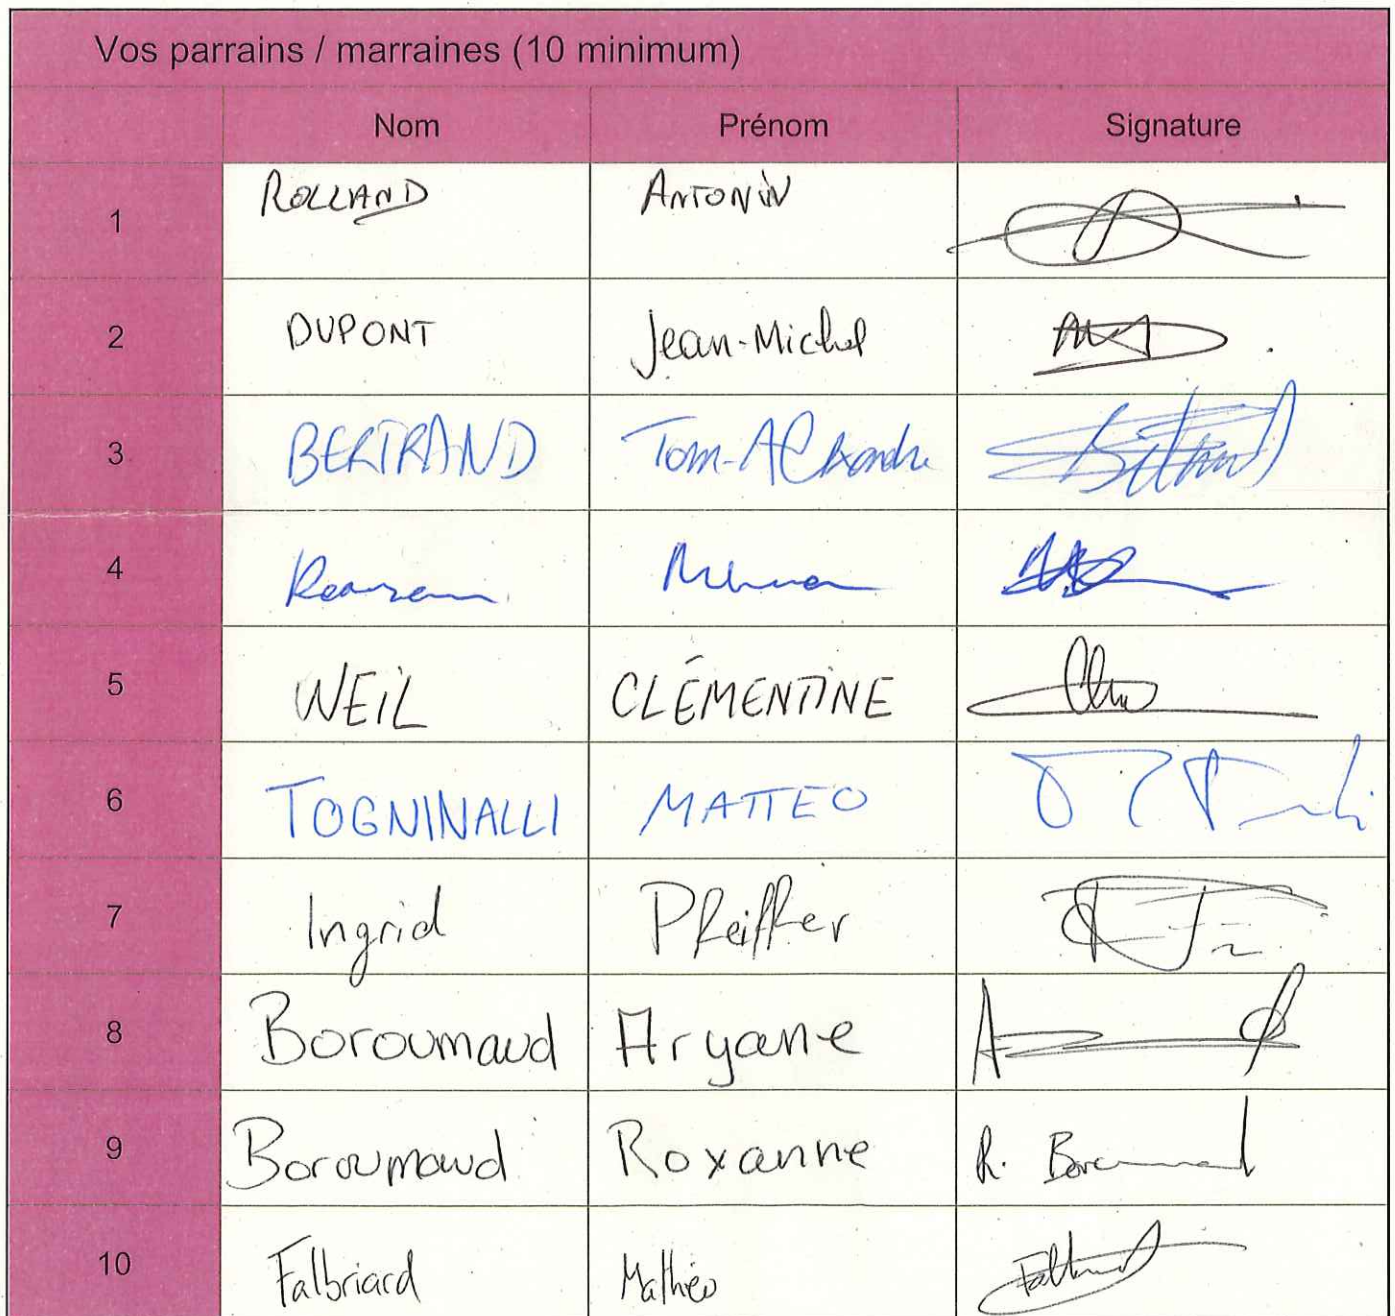 Vos parrains / marraines (10 minimum)
Nom Prénom Signature
1 ROLLAND ANTONIN
2 DUPONT Jean-Michel
3 BERTRAND Tom-Alexandre
4
5 WEIL CLÉMENTINE
6 TOGNINALLI MATTEO
7 Ingrid Pfeiffer
8 Boroumand Aryane
9 Boroumand Roxanne R.
10 Falbriard Mathieu